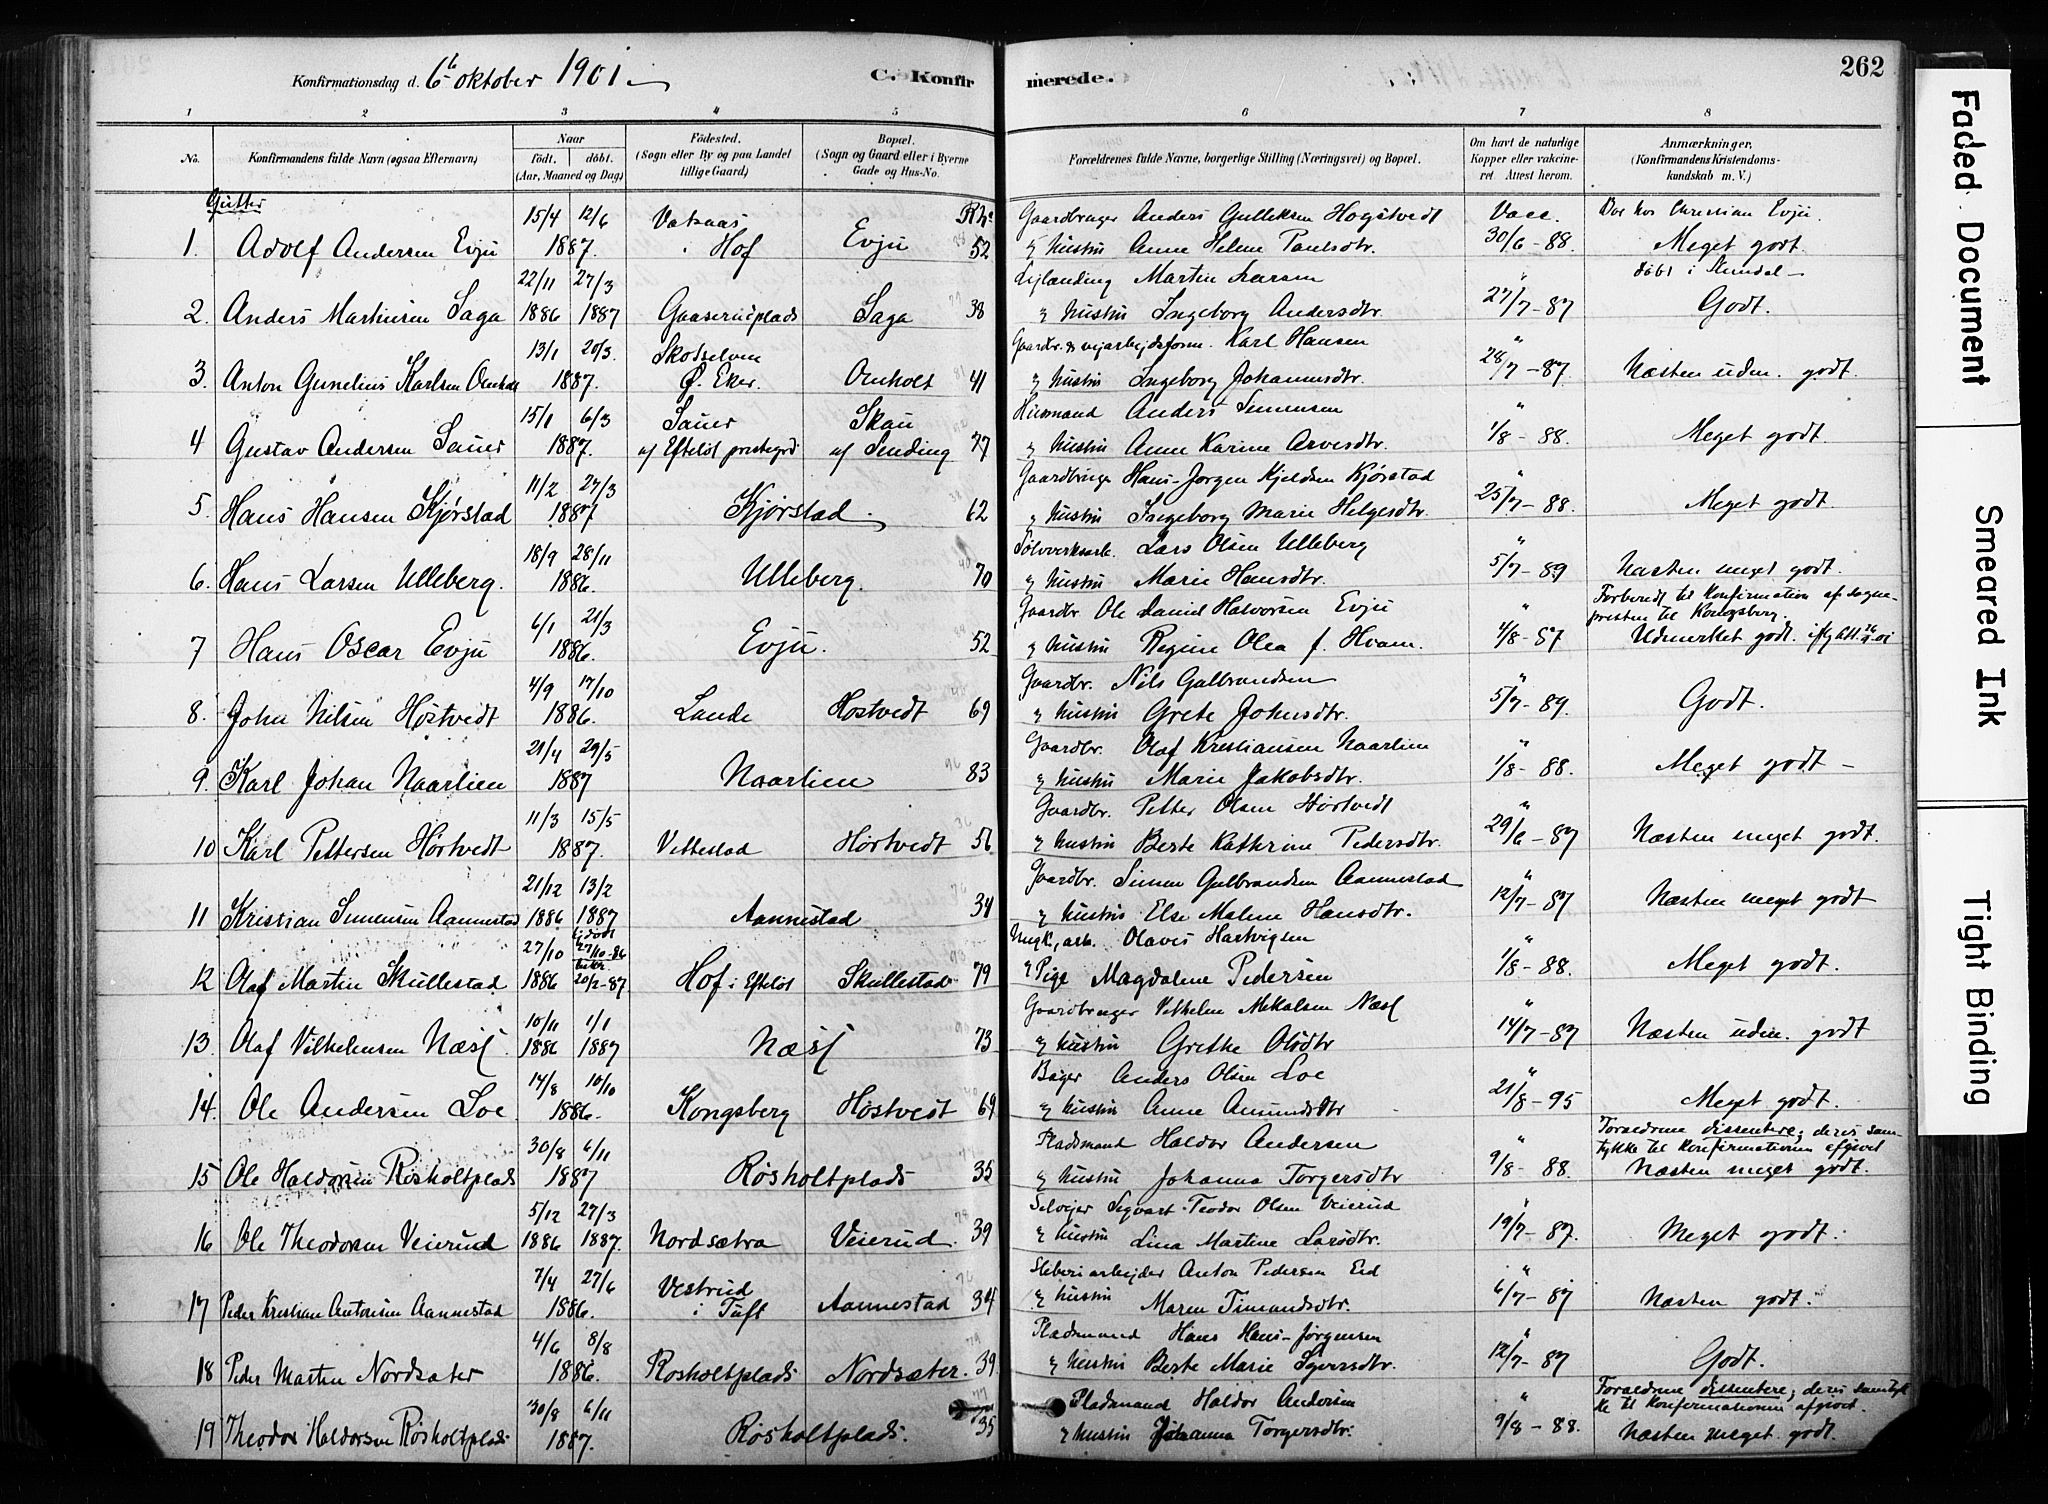 Konfirmationsdag d. 6te oktober 1901. C. Konfirmerede. 262
1 2 3 4 5 6 7 8
No. Konfirmandens fulde Navn (ogsaa Efternavn) Naar født. døbt. (Aar, Maaned og Dag) Fødested. (Sogn eller By og paa Landet tillige Gaard) Bopæl. (Sogn og Gaard eller i Byerne Gade og Hus-No. Forældrenes fulde Navne, borgerlige Stilling (Næringsvei) og Bopæl. Om havt de naturlige Kopper eller vakcineret. Attest herom. Anmærkninger, (Konfirmandens Kristendomskundskab m. V.)
Gutter
15/4 12/6 Vataas Gaardbruger Anders Gulliksen Hogstvedt Vacc. Bor hos Christian Evju.
1. Adolf Andersen Evju 1887. i Hof Evju 52 & hustru Anne Helene Paulsdtr. 30/6-88. Meget godt.
22/11 27/3 Leilænding Martin Larsen " døbt i Skundal
2. Anders Martinsen Saga 1886 1887 Gaaserudplads Saga 38 & hustru Ingeborg Andersdtr. 27/7-87 Godt.
13/1 20/3. Skotselven Gaardbr. & veiarbeidsform. Karl Hansen "
3. Anton Gunelius Karlsen Omholt 1887. Ø. Eker. Omholt 41 & hustru Ingeborg Johannesdtr. 28/7-87. Næsten uden. godt.
15/1 6/3 Sauer Skau Husmand Anders Simensen "
4 Gustav Andersen Sauer 1887. af Efteløt prestegrd af Sending 77 & hustru Anne Karine Arvesdtr. 1/8-88. Meget godt.
11/2 27/3 Gaardbruger Hans-Jørgen Kjeldsen Kjørstad "
5. Hans Hansen Kjørstad 1887 Kjørstad. 62 & hustru Ingeborg Marie Helgesdtr. 25/7-88. Meget godt
18/9 28/11 Sølvverksarb. Lars Olsen Ulleberg "
6. Hans Larsen Ulleberg. 1886. Ulleberg. 70 & hustru Marie Hansdtr. 5/7-89 Næsten meget godt.
6/1 21/3 Gaardbr. Ole Daniel Halvorsen Evju " Forberedt til Konfirmation af sognepresten til Kongsberg.
7 Hans Oscar Evju 1886. Evju. 52 & hustru Regine Olea f. Hvam. 4/8-87 Udmerket godt.
4/9 17/10 Gaardbr. Nils Gulbrandsen "
8. John Nilsen Høstvedt 1886. Lande Høstvedt 69 & hustru Grete Johnsdtr. 5/7-89. Godt.
21/4 29/5 Gaardbr. Olaf Kristiansen Naarlien "
9. Karl Johan Naarlien 1887 Naarlien 83 & hustru Marie Jakobsdtr. 1/8-88. Meget godt
11/3 15/5 Gaardbr. Petter Olsen Hørtvedt "
10 Karl Pettersen Hørtvedt 1887. Vettestad Hørtvedt 56 & hustru Berte Kathrine Pedersdtr. 29/6-87 Næsten meget godt.
21/12 13/2 Gaardbr. Simen Gulbrandsen Aannestad "
11 Kristian Simensen Aannestad 1886 1887 Aannestad 34 & hustru Else Malene Hansdtr. 12/7-87 Næsten meget godt
27/10 hj.døbt 27/10-86 Ungk., arb. Olaves Hartvigsen "
12 Olaf Martin Skullestad 1886 bekr. 20/2-87 Hof i Efteløt Skullestad 79 & Pige Magdalene Pedersen 1/8-88. Meget godt.
10/11 1/1 Gaardbruger Vilhelm Mikalsen Næss "
13. Olaf Vilhelmsen Næss. 1886 1887 Næss 73 & hustru Grethe Olsdtr 14/7-87 Næsten uden. godt
14/8 10/10 Bager Anders Olsen Loe "
14. Ole Andersen Loe. 1886. Kongsberg Høstvedt 69 & hustru Anne Amundsdtr 21/8-95 Meget godt.
30/8 6/11 Pladsmand Haldor Andersen " Forældrene dissentere; deres samtykke til Konfirmationen afgivet
15 Ole Haldorsen Røsholtplads 1887 Røsholtplads 35 & hustru Johanna Torgersdtr 9/8-88. Næsten meget godt.
5/12 27/3 Selveier Segvart-Teodor Olsen Veierud "
16 Ole Theodorsen Veierud 1886 1887. Nordsætra Veierud. 39 & hustru Lina Martine Larsdtr. 19/7-87. Meget godt.
7/4 27/6 Vestrud Sliberiarbejder Anton Pedersen Eid "
17 Peder Kristian Antonsen Aannestad 1886. i Tuft Aannestad 34 & hustru Maren Timandsdtr. 6/7-87 Næsten godt.
4/6 8/8 Pladsmand Hans Hans-Jørgensen "
18 Peder Martin Nordsæter 1886. Røsholtplads Nordsæter. 39. & hustru Berte Marie Syversdtr. 12/7-87 Godt.
30/8 6/11 Pladsmand Haldor Andersen " Forældrene dissentere; deres samtykke til Konfirmationen afgivet.
19 Theodor Haldorsen Røsholtplads 1887. Røsholtplads. 35 & hustru Johanna Torgersdtr. 9/8-88. Næsten meget godt.
Faded Document
Smeared Ink
Tight Binding